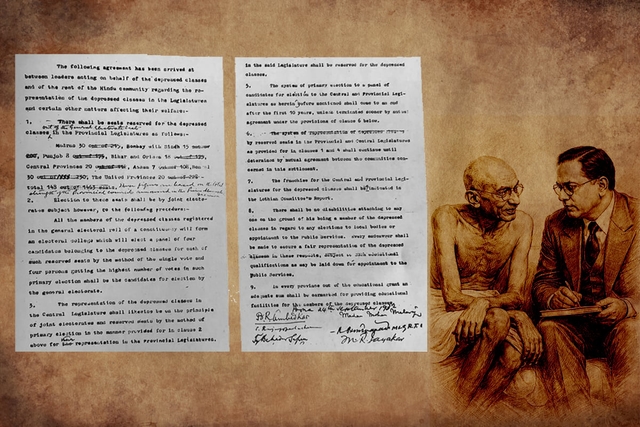 The following agreement has been arrived at
between leaders acting on behalf of the depressed classes
and of the rest of the Hindu community regarding the re-
presentation of the depressed classes in the Legislatures
and certain other matters affecting their welfare:-
1. There shall be seats reserved for the depressed
out of the General Electorate seats
classes in the Provincial Legislatures as follows:-
Madras 30 Bombay with Sindh 15
Punjab 8 Bihar and Orissa 18
Central Provinces 20 Assam 7
30 The United Provinces 20
Total 148
2. Election to these seats shall be by joint electo-
rates subject however, to the following procedure:-
All the members of the depressed classes registered
in the general electoral roll of a constituency will form
an electoral college which will elect a panel of four
candidates belonging to the depressed classes for each of
such reserved seats by the method of the single vote and
four persons getting the highest number of votes in such
primary election shall be the candidates for election by
the general electorate.
3. The representation of the depressed classes in
the Central Legislature shall likewise be on the principle
of joint electorates and reserved seats by the method of
primary election in the manner provided for in clause 2
above for their representation in the Provincial Legislatures.
in the said Legislature shall be reserved for the depressed
classes.
5. The system of primary election to a panel of
candidates for election to the Central and Provincial Legis-
latures as herein before mentioned shall come to an end
after the first 10 years, unless terminated sooner by mutual
agreement under the provisions of clause 6 below.
6. The system of representation of depressed classes
by reserved seats in the Provincial and Central Legislatures
as provided for in clauses 1 and 4 shall continue until
determined by mutual agreement between the communities con-
cerned in this settlement.
7. The franchise for the Central and Provincial Legis-
latures for the depressed classes shall be indicated in the
Lothian Committee's Report.
8. There shall be no disabilities attaching to any
one on the ground of his being a member of the depressed
classes in regard to any elections to local bodies or
appointment to the Public Services. every endeavour shall
be made to secure a fair representation of the depressed
classes in these respects, subject to such educational
qualifications as may be laid down for appointment to the
Public Services.
9. In every province out of the educational grant an
adequate sum shall be earmarked for providing educational
facilities for the members of the depressed classes.
Poona 24th September 1932